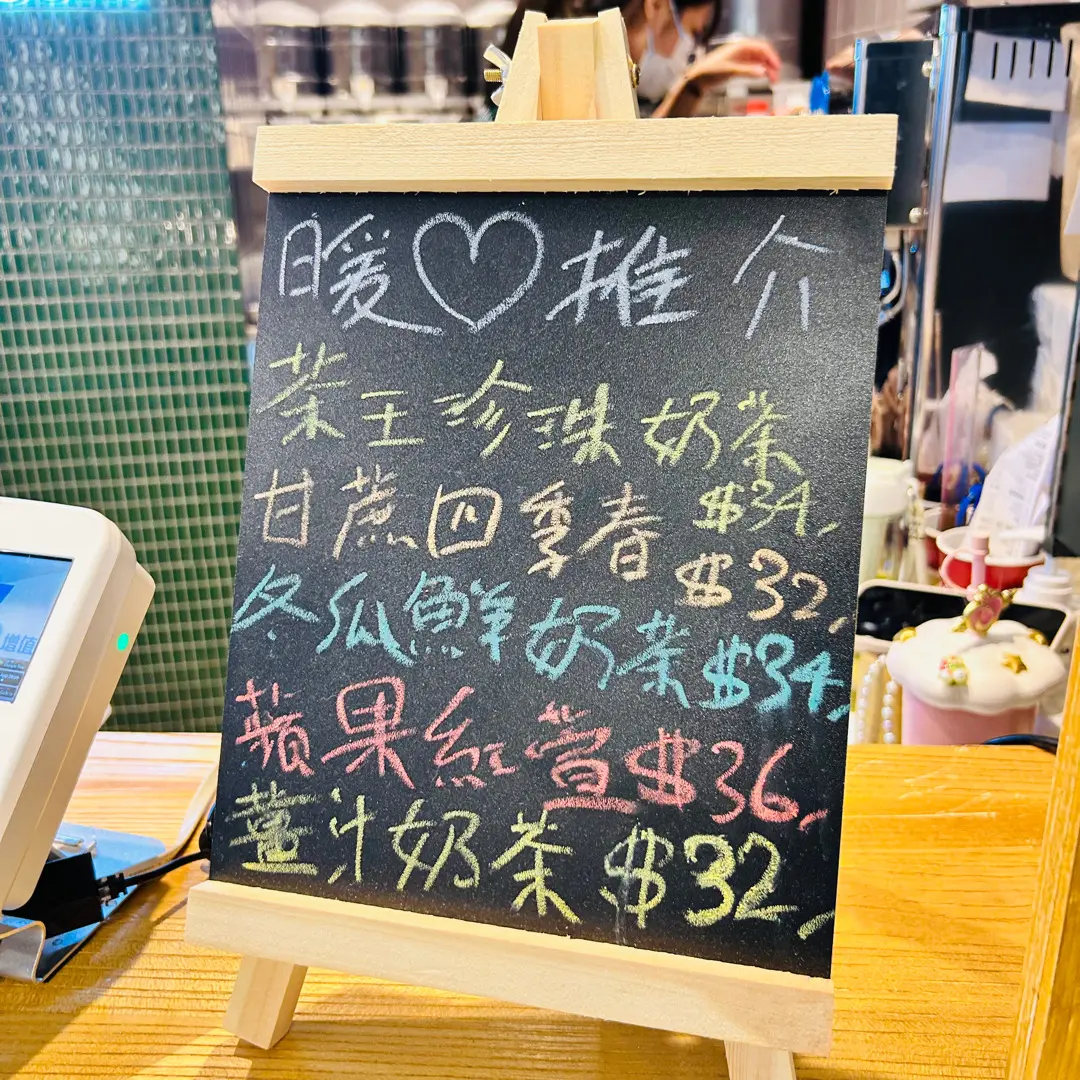 暖♡推介
茶王珍珠奶茶
$34,
甘蔗四季春 $32,
冬瓜鮮奶茶 $34,
蘋果紅萱 $36,
薑汁奶茶 $32,
增值